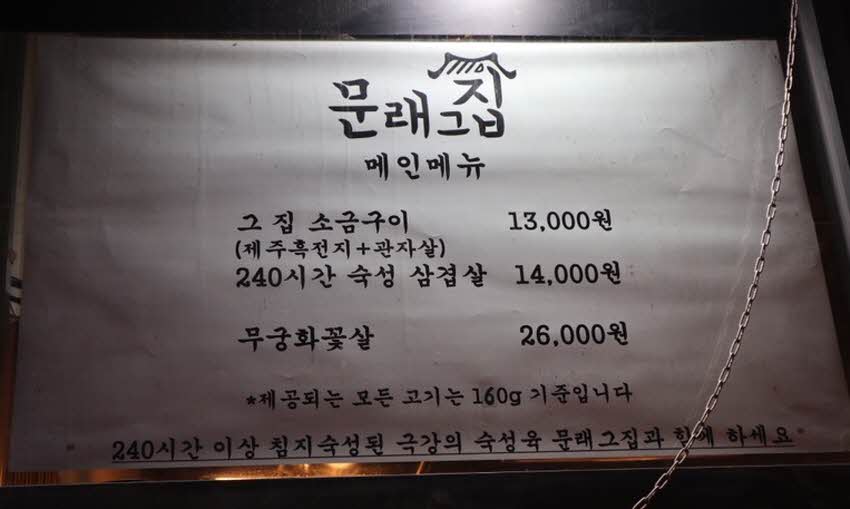 문래그집
메인메뉴
그 집 소금구이 13,000원
(제주흑전지+관자살)
240시간 숙성 삼겹살 14,000원
무궁화꽃살 26,000원
*제공되는 모든 고기는 160g 기준입니다
240시간 이상 침지숙성된 극강의 숙성육 문래그집과 함께 하세요